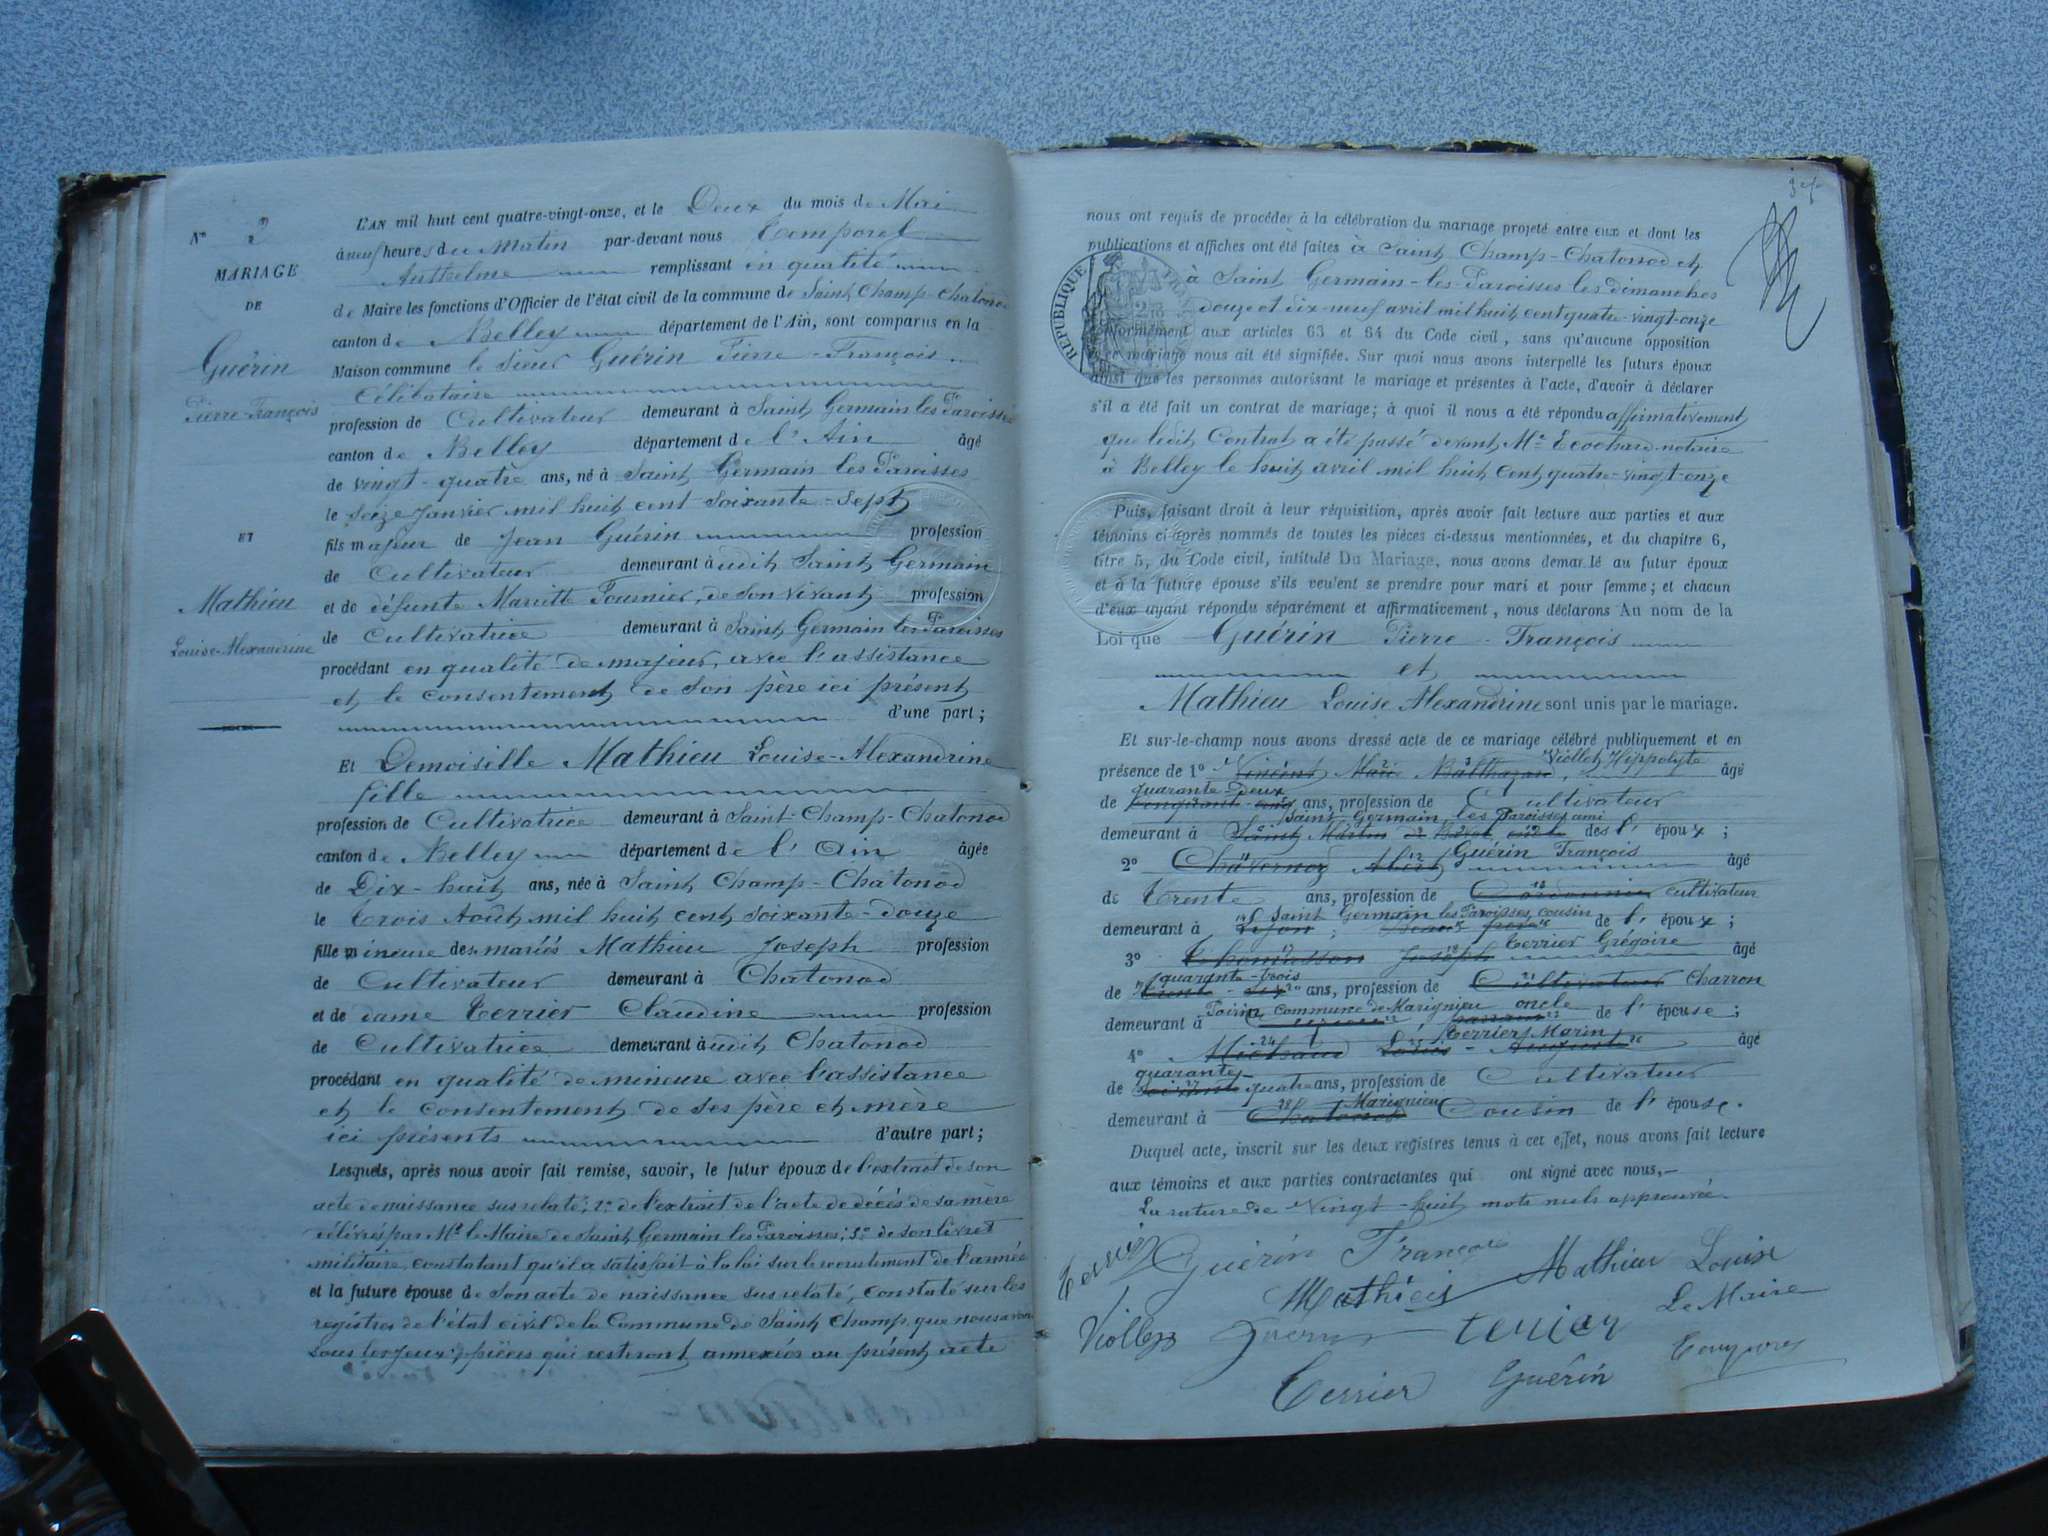 N° 2
MARIAGE
DE
Guérin
Pierre François
ET
Mathieu
Louise-Alexandrine
L'AN mil huit cent quatre-vingt-onze, et le Deux du mois de Mai
à neuf heures du Matin par-devant nous Temporel
Anthelme remplissant en qualité
de Maire les fonctions d'Officier de l'état civil de la commune de Saint Champ-Chatonod
canton de Belley département de l'Ain, sont comparus en la
Maison commune le Sieur Guérin Pierre-François
Célibataire
profession de Cultivateur demeurant à Saint Germain les Paroisses
canton de Belley département de l'Ain âgé
de vingt-quatre ans, né à Saint Germain les Paroisses
le Seize Janvier mil huit cent Soixante-Sept
fils majeur de Jean Guérin profession
de Cultivateur demeurant à udit Saint Germain
et de défunte Mariette Fournier, de son vivant profession
de Cultivatrice demeurant à Saint Germain les Paroisses
procédant en qualité de majeur, avec l'assistance
et le consentement de son père ici présent
d'une part;
Et Demoiselle Mathieu Louise-Alexandrine
fille
profession de Cultivatrice demeurant à Saint-Champ-Chatonod
canton de Belley département de l'Ain âgée
de Dix-huit ans, née à Saint Champ-Chatonod
le Trois Août mil huit cent soixante-douze
fille mineure des mariés Mathieu Joseph profession
de Cultivateur demeurant à Chatonod
et de dame Terrier Claudine profession
de Cultivatrice demeurant à udit Chatonod
procédant en qualité de mineure avec l'assistance
et le consentement de ses père et mère
ici présents d'autre part;
Lesquels, après nous avoir fait remise, savoir, le futur époux de l'extrait de son
acte de naissance susrelaté; 2° de l'extrait de l'acte de décès de sa mère
délivrés par Mr le Maire de Saint Germain les Paroisses; 3° de son livret
militaire, constatant qu'il a satisfait à la loi sur le recrutement de l'armée
et la future épouse de Son acte de naissance susrelaté, constaté sur les
registres de l'état civil de la Commune de Saint Champ, que nous avons
sous les yeux, pièces qui resteront annexées au présent acte
nous ont requis de procéder à la célébration du mariage projeté entre eux et dont les
publications et affiches ont été faites à Saint Champ-Chatonod et
à Saint Germain-les-Paroisses les dimanches
douze et dix-neuf avril mil huit cent quatre-vingt-onze
conformément aux articles 63 et 64 du Code civil, sans qu'aucune opposition
à ce mariage nous ait été signifiée. Sur quoi nous avons interpellé les futurs époux
ainsi que les personnes autorisant le mariage et présentes à l'acte, d'avoir à déclarer
s'il a été fait un contrat de mariage; à quoi il nous a été répondu affirmativement
que ledit Contrat a été passé devant Me Ecochard notaire
à Belley le huit avril mil huit cent quatre-vingt-onze
RÉPUBLIQUE
Puis, faisant droit à leur réquisition, après avoir fait lecture aux parties et aux
témoins ci-après nommés de toutes les pièces ci-dessus mentionnées, et du chapitre 6,
titre 5, du Code civil, intitulé Du Mariage, nous avons demandé au futur époux
et à la future épouse s'ils veulent se prendre pour mari et pour femme; et chacun
d'eux ayant répondu séparément et affirmativement, nous déclarons Au nom de la
Loi que Guérin Pierre-François
et
Mathieu Louise Alexandrine sont unis par le mariage.
Et sur-le-champ nous avons dressé acte de ce mariage célébré publiquement et en
présence de 1° Vincent Marie Balthazar Viollet Hippolyte âgé
de quarante-deux ans, profession de Cultivateur
demeurant à Saint Germain les Paroisses ami de l'époux;
2° Chavernoz Guérin François âgé
de Trente ans, profession de Cordonnier cultivateur
demeurant à Lyon Saint Germain les Paroisses, cousin de l'époux;
3° Thomasson Joseph Terrier Grégoire âgé
de quarante-trois ans, profession de Cultivateur Charron
demeurant à Commune de Marignieu oncle de l'épouse;
4° Michaud Louis-Auguste Terrier Marin âgé
de quarante quatre ans, profession de Cultivateur
demeurant à Chatonod Marignieu Cousin de l'épouse.
Duquel acte, inscrit sur les deux registres tenus à cet effet, nous avons fait lecture
aux témoins et aux parties contractantes qui ont signé avec nous,
La rature de Vingt-huit mots nuls approuvée
Terrier Guérin François Mathieu Louise
Mathieu Le Maire
Viollet Guerin terrier Temporel
Terrier Guérin